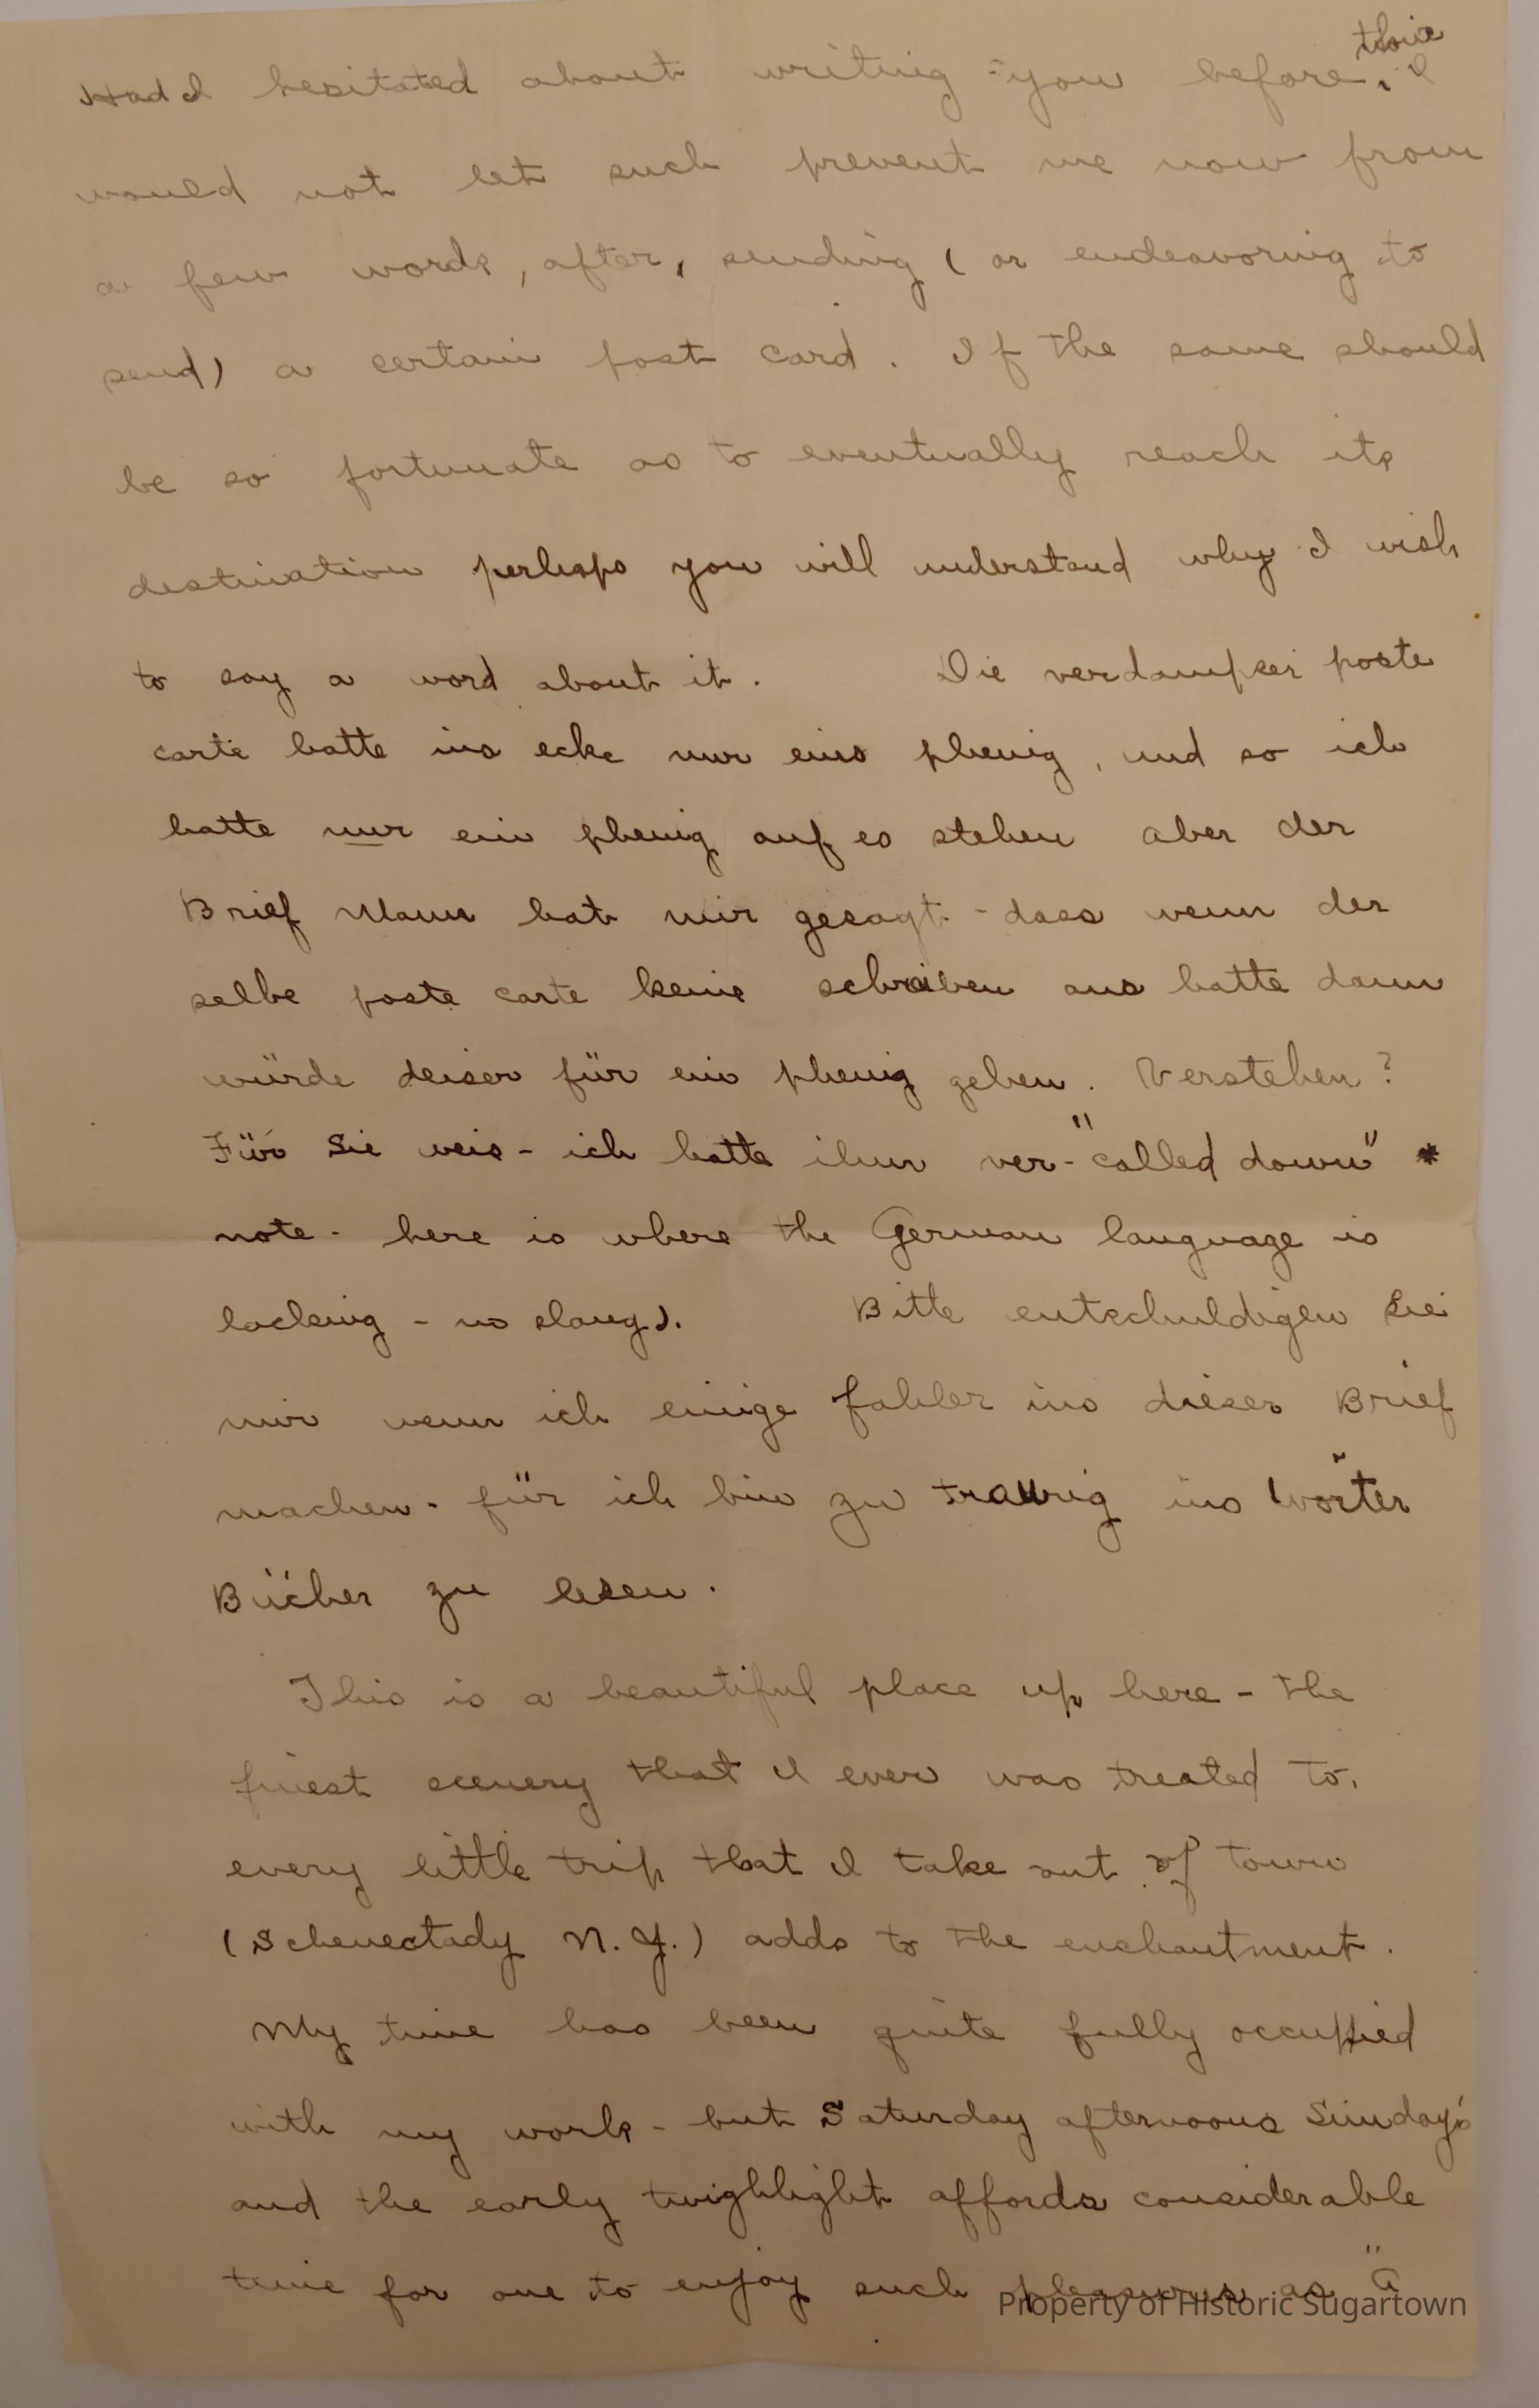 Had I hesitated about writing you before, I
would not let such prevent me now from
a few words, after, sending ( or endeavoring to
send) a certain post card. If the same should
be so fortunate as to eventually reach its
destination perhaps you will understand why I wish
to say a word about it. Die poste
carte hatte ins ecke nur eins phenig, und so ich
hatte nur ein phenig auf es stehen aber der
Brief Mann hat mir gesagt - dass wenn der
selbe poste carte keine schreiben aus hatte dann
würde deiser für ein phenig gehen. Verstehen?
Für Sie weis - ich hatte ihm ver-"called down" *
note - here is where the German language is
lacking - no slang).  Bitte entschuldigen Sie
mir wenn ich einige fahler ins dieser Brief
machen - für ich bin zu traurig ins Wörter
Bücher zu lesen.
This is a beautiful place up here - the
finest scenery that I ever was treated to,
every little trip that I take out of town
(Schenectady N.Y.) adds to the enchantment.
My time has been quite fully occupied
with my work - but Saturday afternoons Sunday's
and the early twighlight affords considerable
time for one to enjoy such pleasures as "a
Property of Historic Sugartown